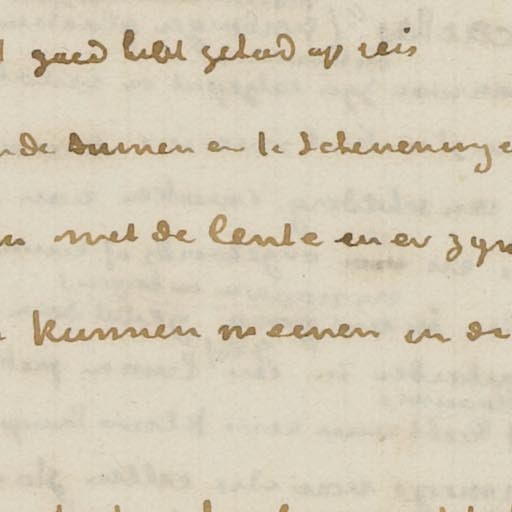 goed hebt gehad op reis
de duinen en te Scheveninge
met de lente en er zyn
kunnen meenen in de